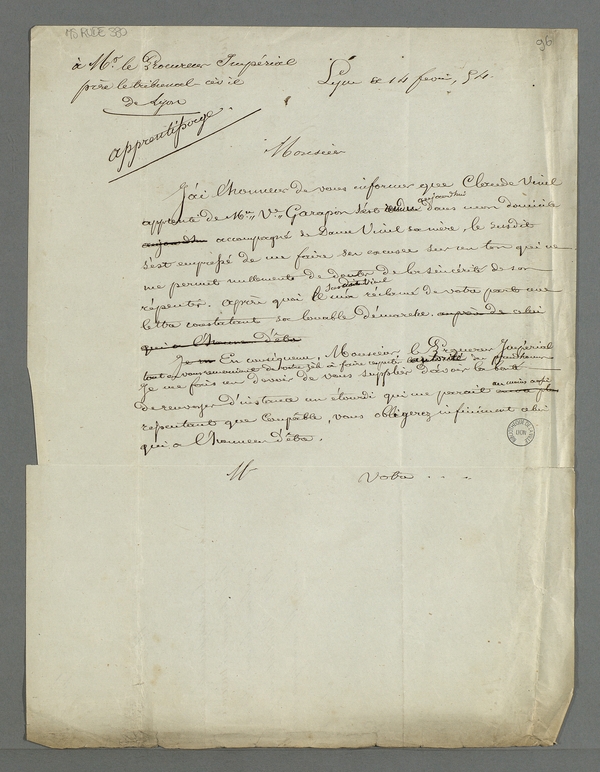 MS RUDE 380
96
à Mr. le Procureur Impérial
près le tribunal civil
de Lyon
Lyon le 14 fevrier, 54.
apprentissage
Monsieur
J'ai l'honneur de vous informer que Claude Vinil
aujourd'hui
apprenti de Mme Ve Garapon s'est rendu dans mon domicile
aujourd'hui accompagné de Dame Vinil sa mère, le susdit
s'est empressé de me faire ses excuses sur un ton qui ne
me permit nullement de douter de la sincérité de son
susdit Vinil
répentir. après quoi le m'a réclamé de votre part une
lettre constatant sa louable démarche. auprès de celui
qui a l'honneur d'être
Je En conséquence, Monsieur, le Procureur Impérial
tout en vous remerciant de votre zèle à faire respecter l'autorité du prudhomme
Je me fais un devoir de vous supplier d'avoir la bonté
de renvoyer d'instance un étourdi qui me parait au moins aussi
repentant que coupable, vous obligerez infiniment celui
qui a l'honneur d'être.
Votre . . . .
BIBLIOTHEQUE DE LA VILLE LYON